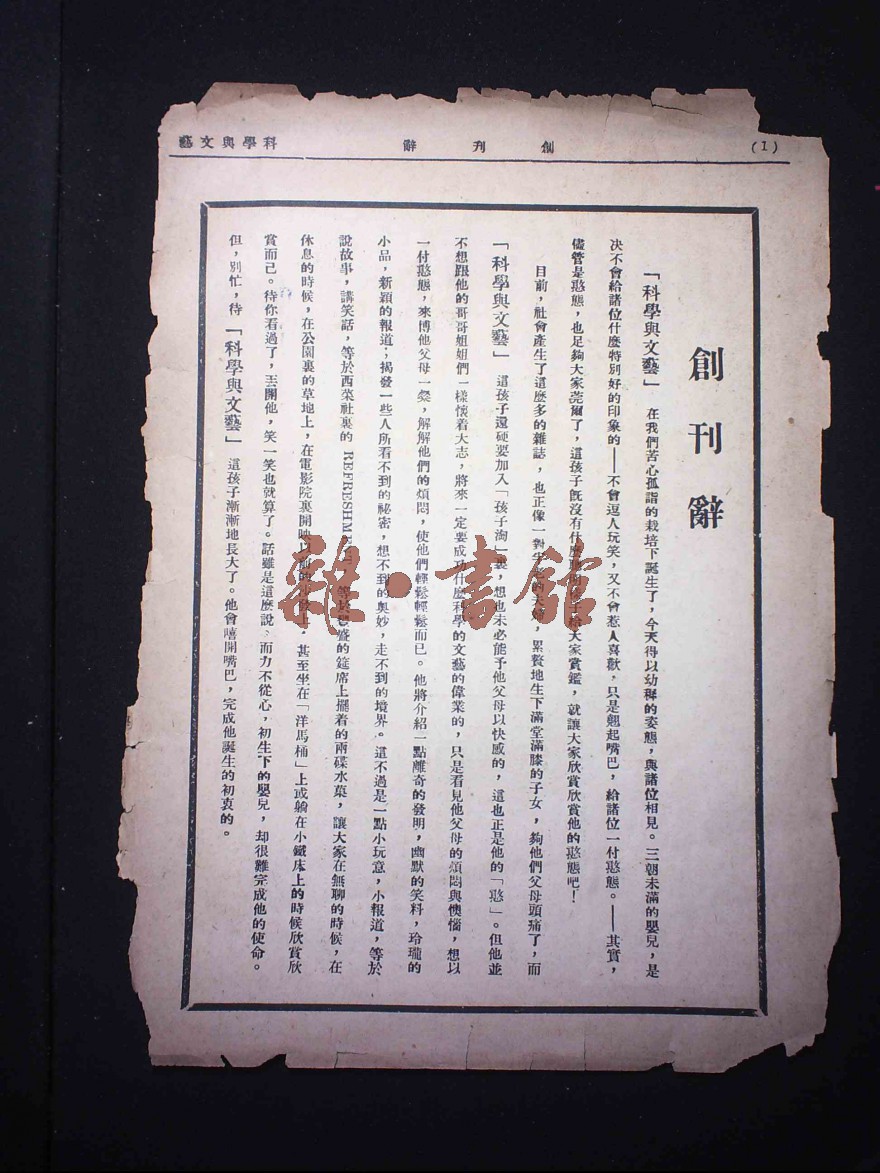 (1)
創刊辭
科學與文藝
創刊辭
「科學與文藝」 在我們苦心孤詣的栽培下誕生了，今天得以幼稺的姿態，與諸位相見。三朝未滿的嬰兒，是
决不會給諸位什麽特別好的印象的——不會逗人玩笑，又不會惹人喜歡，只是翹起嘴巴，給諸位一付憨態。——其實，
儘管是憨態，也足夠大家莞爾了，這孩子旣沒有什麽給大家賞鑑，就讓大家欣賞欣賞他的憨態吧！
目前，社會產生了這麽多的雜誌，也正像一對半老的夫婦，累贅地生下滿堂滿膝的子女，夠他們父母頭痛了，而
「科學與文藝」 這孩子還硬要加入「孩子淘」裏，想也未必能予他父母以快感的，這也正是他的「憨」。但他並
不想跟他的哥哥姐姐們一樣懷着大志，將來一定要成功什麽科學的文藝的偉業的，只是看見他父母的煩悶與懊惱，想以
一付憨態，來博他父母一粲，解解他們的煩悶，使他們輕鬆輕鬆而已。他將介紹一點離奇的發明，幽默的笑料，玲瓏的
小品，新穎的報道；揭發一些人所看不到的祕密，想不到的奧妙，走不到的境界。這不過是一點小玩意，小報道，等於
說故事，講笑話，等於西菜社裏的 REFRESHMENT 等於豐盛的筵席上擺着的兩碟水菓，讓大家在無聊的時候，在
休息的時候，在公園裏的草地上，在電影院裏開映以前的沙發上，甚至坐在「洋馬桶」上或躺在小鐵床上的時候欣賞欣
賞而已。待你看過了，丟開他，笑一笑也就算了。話雖是這麽說，而力不從心，初生下的嬰兒，却很難完成他的使命。
但，別忙，待「科學與文藝」 這孩子漸漸地長大了。他會嘻開嘴巴，完成他誕生的初衷的。
雜·書館